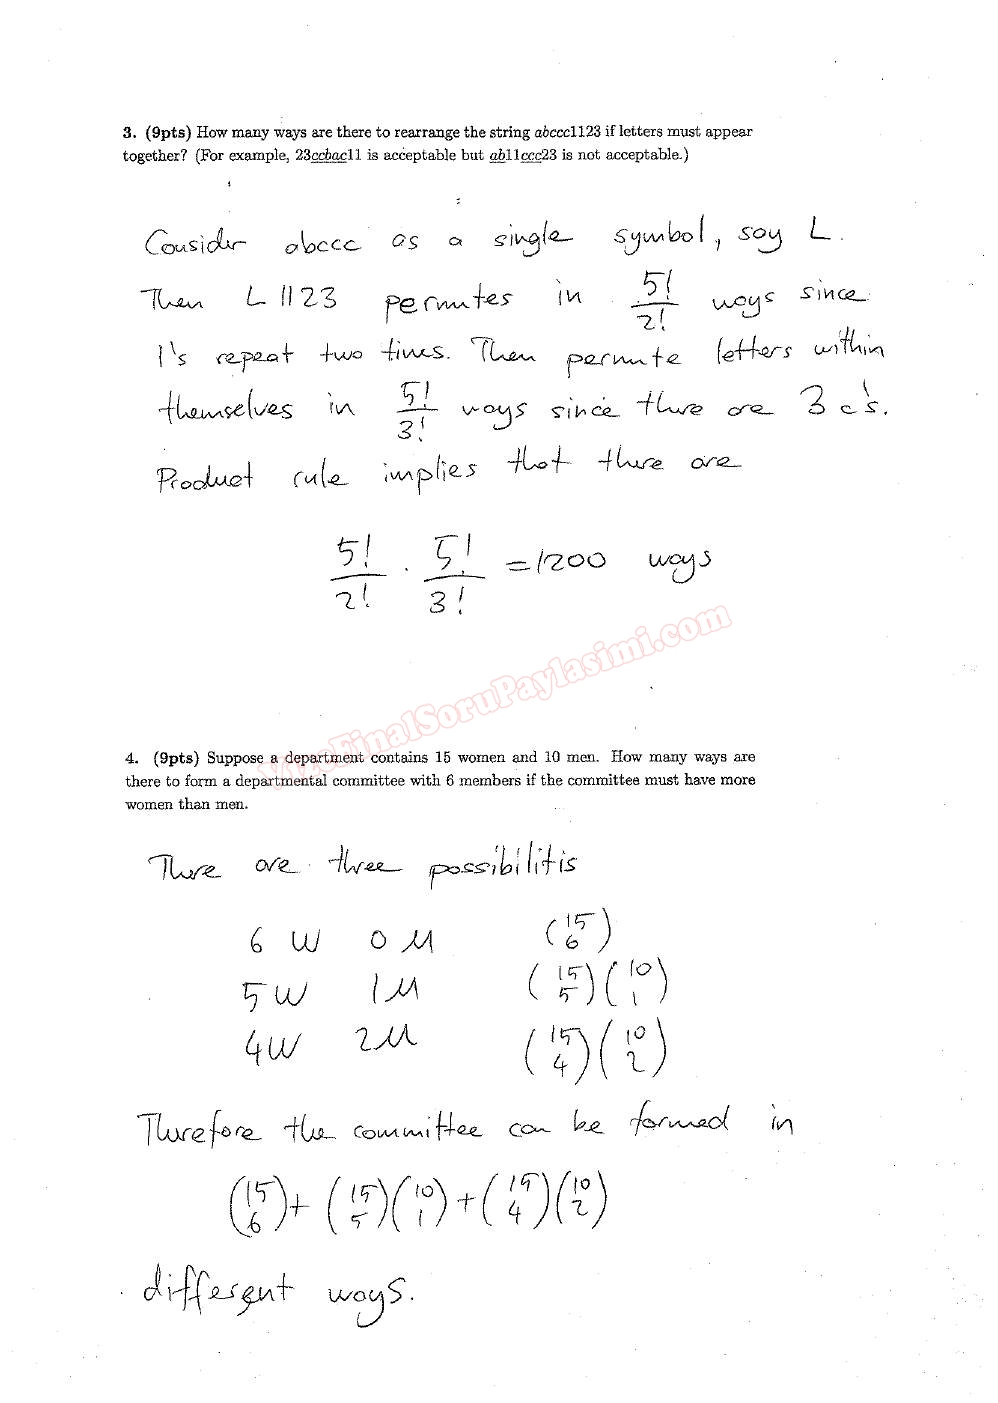 3. (9pts) How many ways are there to rearrange the string abccc1123 if letters must appear
together? (For example, 23ccbac11 is acceptable but ab11ccc23 is not acceptable.)
Consider abccc as a single symbol, say L.
Then L1123 permutes in 5!/2! ways since
1's repeat two times. Then permute letters within
themselves in 5!/3! ways since there are 3 c's.
Product rule implies that there are
5!/2! · 5!/3! = 1200 ways
VizeFinalSoruPaylasimi.com
4. (9pts) Suppose a department contains 15 women and 10 men. How many ways are
there to form a departmental committee with 6 members if the committee must have more
women than men.
There are three possibilitis
6 W 0 M (15 6)
5 W 1 M (15 5)(10 1)
4 W 2 M (15 4)(10 2)
Therefore the committee can be formed in
(15 6) + (15 5)(10 1) + (15 4)(10 2)
different ways.